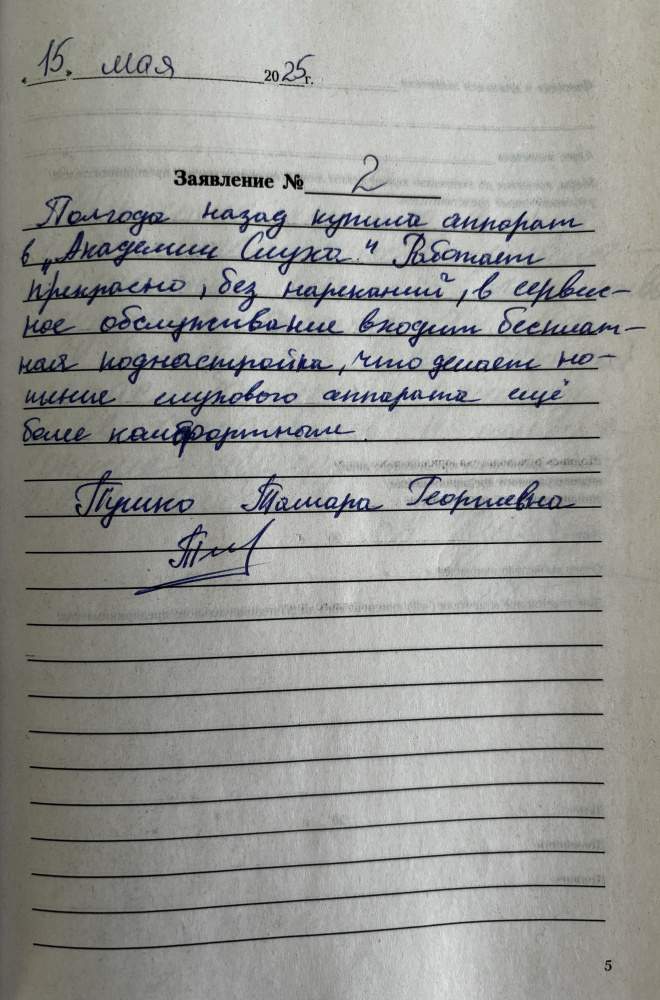 « 15 » мая 2025 г.
Заявление № 2
Полгода назад купила аппарат
в „Академии Слуха." Работает
прекрасно, без нареканий, в сервис-
ное обслуживание входит бесплат-
ная поднастройка, что делает но-
шение слухового аппарата ещё
более комфортным.
Тамара Георгиевна
5